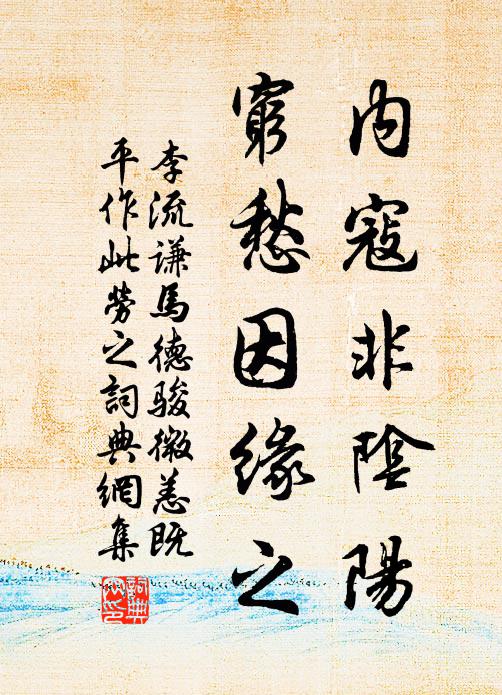 內寇非陰陽
窮愁因緣之
李流謙馬德駿微恙既
平作此勞之詞典網集